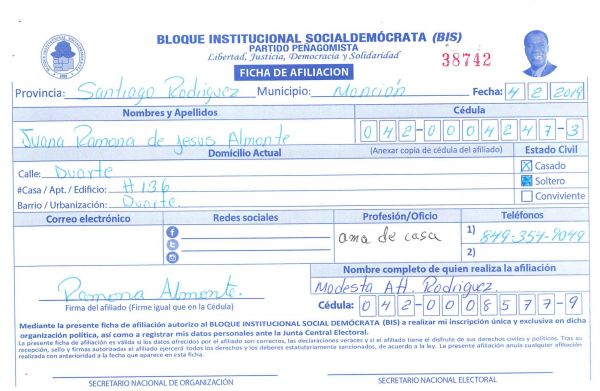 BLOQUE INSTITUCIONAL SOCIALDEMÓCRATA (BIS)
PARTIDO PEÑAGOMISTA
Libertad, Justicia, Democracia y Solidaridad
38742
FICHA DE AFILIACION
Provincia: Santiago Rodriguez Municipio: Monción Fecha: 4/2/2019
Nombres y Apellidos Cédula
Juana Ramona de Jesus Almonte 042-0004247-3
Domicilio Actual (Anexar copia de cédula del afiliado) Estado Civil
Calle: Duarte Casado
#Casa / Apt. / Edificio: #136 Soltero
Barrio / Urbanización: Duarte. Conviviente
Correo electrónico Redes sociales Profesión/Oficio Teléfonos
ama de casa 1) 849-354-9049
2)
Nombre completo de quien realiza la afiliación
Ramona Almonte. Modesta Alt. Rodríguez.
Firma del afiliado (Firme igual que en la Cédula) Cédula: 042-0008577-9
Mediante la presente ficha de afiliación autorizo al BLOQUE INSTITUCIONAL SOCIAL DEMÓCRATA (BIS) a realizar mi inscripción única y exclusiva en dicha
organización política, así como a registrar mis datos personales ante la Junta Central Electoral.
La presente ficha de afiliación es válida si los datos ofrecidos por el afiliado son correctos, las declaraciones veraces y si el afiliado tiene el disfrute de sus derechos civiles y políticos. Tras su
recepción, sello y firmas autorizadas el afiliado ejercerá todos los derechos y los deberes estatutariamente sancionados, de acuerdo a la ley. La presente afiliación anula cualquier afiliación
realizada con anterioridad a la fecha que aparece en esta ficha.
SECRETARIO NACIONAL DE ORGANIZACIÓN SECRETARIO NACIONAL ELECTORAL